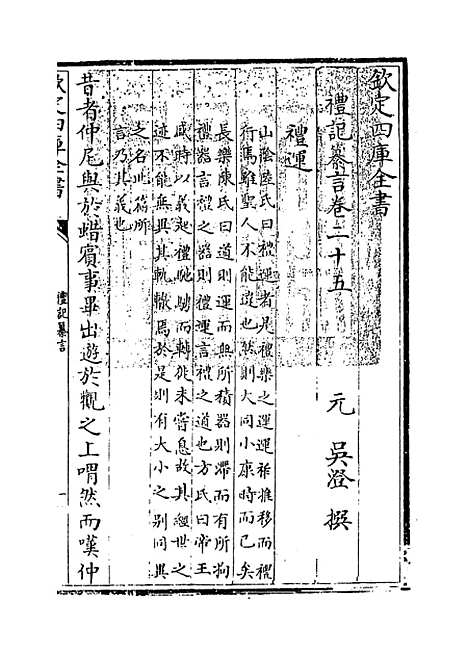 欽定四庫全書
禮記纂言卷二十五
元 吳澄 撰
禮運
山陰陸氏曰禮運者凡禮樂之運運祚推移而禮
行焉雖聖人不能豈也然則大同小康時而已矣
長樂陳氏曰道則運而無所積器則滯而有所拘
禮器言禮之器則禮運言禮之道也方氏曰帝王
感時以義起禮馳騁而轉徙未嘗息故其經世之
迹不能無異其軌轍焉於是則有大小之别同異
之名此篇所
言乃其義也
昔者仲尼與於蜡賓事畢出遊於觀之上喟然而嘆仲
欽定四庫全書
禮記纂言
一